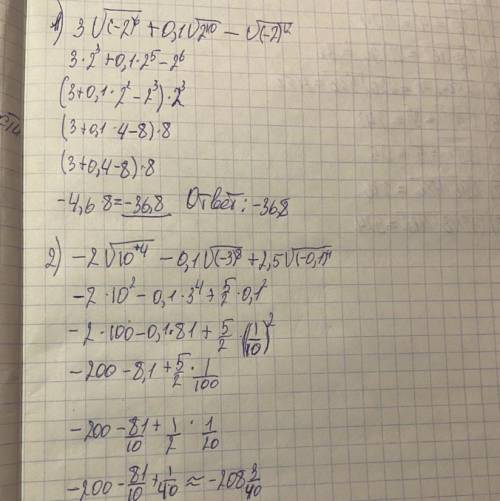 1) 3√(-2)⁶ + 0,1√2¹⁰ - √(-2)¹²
3·2³+0,1·2⁵-2⁶
(3+0,1·2²-2³)·2³
(3+0,1·4-8)·8
(3+0,4-8)·8
-4,6·8=-36,8 Ответ: -36,8
2) -2√10⁺⁴ - 0,1√(-3)⁸ + 2,5√(-0,1)⁴
-2·10²-0,1·3⁴+5/2·0,1²
-2·100-0,1·81+5/2·(1/10)²
-200-8,1+5/2·1/100
-200-81/10+1/2·1/20
-200-81/10+1/40≈-208 3/40